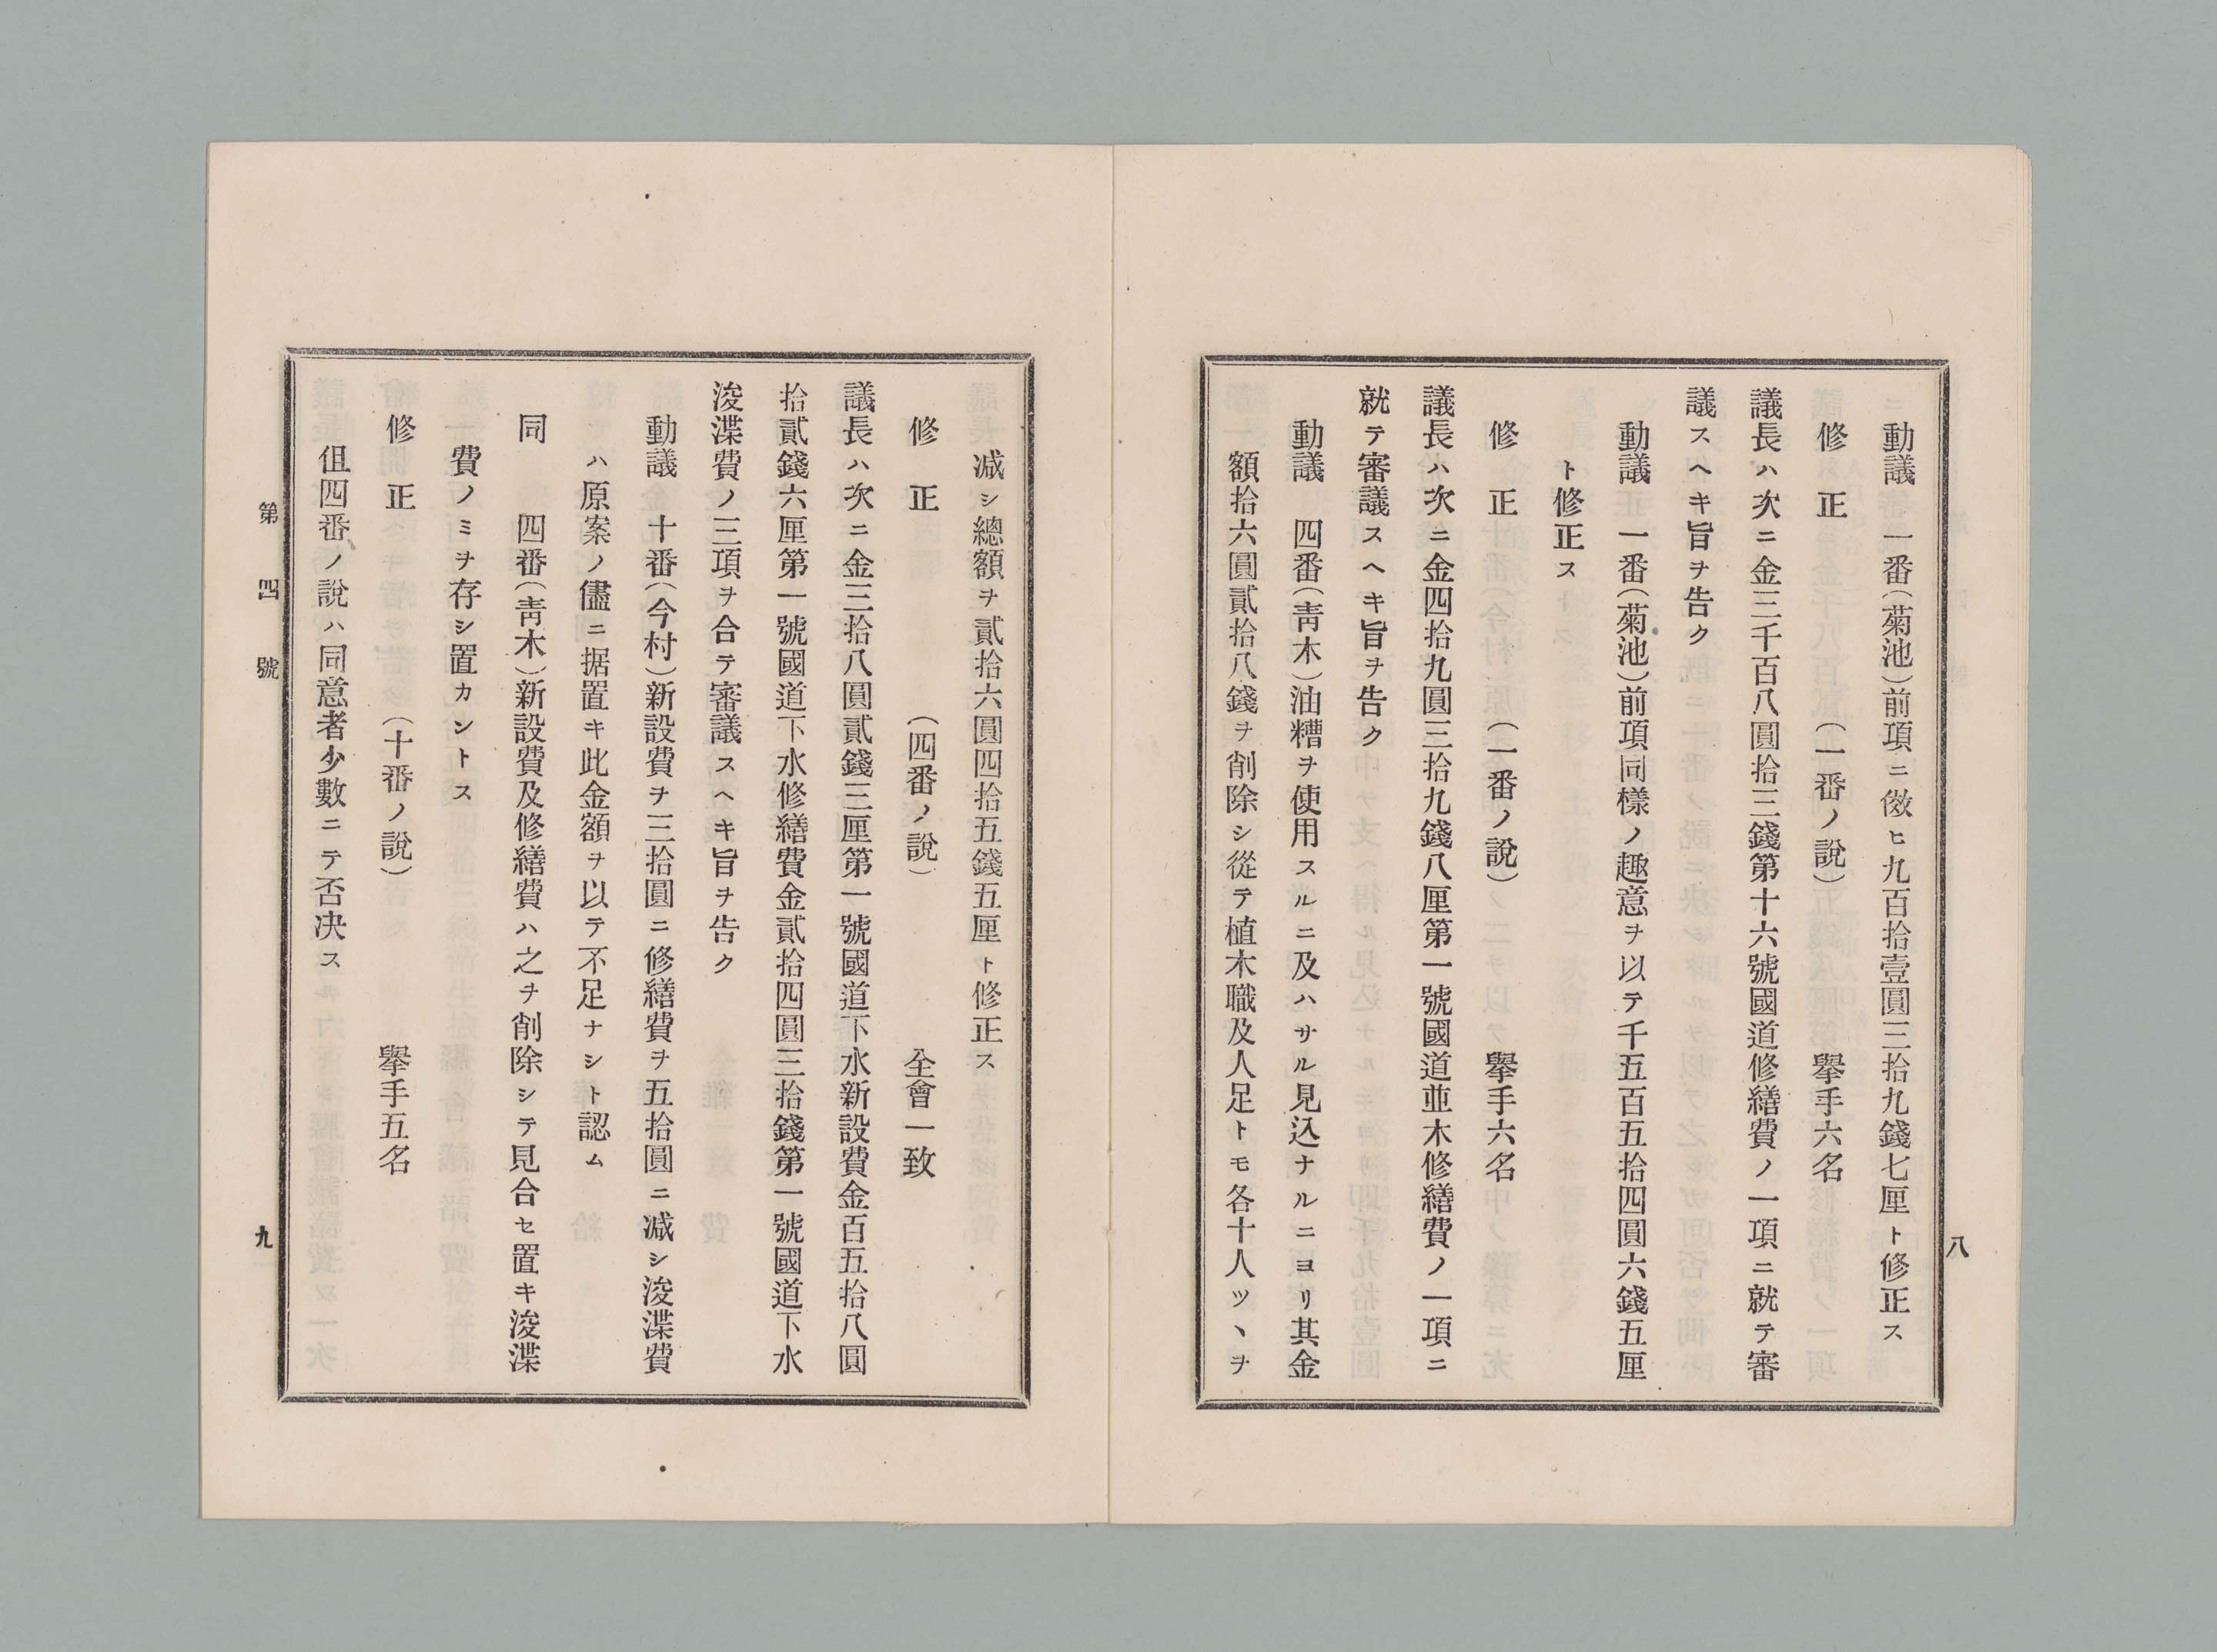 動議　一番（菊池）前項ニ傚ヒ九百拾壹圓三拾九錢七厘ト修正ス
修正　（一番ノ說）　擧手六名
議長ハ次ニ金三千百八圓拾三錢第十六號國道修繕費ノ一項ニ就テ審
議スヘキ旨ヲ告ク
動議　一番（菊池）前項同樣ノ趣意ヲ以テ千五百五拾四圓六錢五厘
ト修正ス
修正　（一番ノ說）　擧手六名
議長ハ次ニ金四拾九圓三拾九錢八厘第一號國道並木修繕費ノ一項ニ
就テ審議スヘキ旨ヲ告ク
動議　四番（靑木）油糟ヲ使用スルニ及ハサル見込ナルニヨリ其金
額拾六圓貳拾八錢ヲ削除シ從テ植木職及人足トモ各十人ツヽヲ
八
減シ總額ヲ貳拾六圓四拾五錢五厘ト修正ス
修正　（四番ノ說）　全會一致
議長ハ次ニ金三拾八圓貳錢三厘第一號國道下水新設費金百五拾八圓
拾貳錢六厘第一號國道下水修繕費金貳拾四圓三拾錢第一號國道下水
浚渫費ノ三項ヲ合テ審議スヘキ旨ヲ告ク
動議　十番（今村）新設費ヲ三拾圓ニ修繕費ヲ五拾圓ニ減シ浚渫費
ハ原案ノ儘ニ据置キ此金額ヲ以テ不足ナシト認ム
同　四番（靑木）新設費及修繕費ハ之ヲ削除シテ見合セ置キ浚渫
費ノミヲ存シ置カントス
修正　（十番ノ說）　擧手五名
但四番ノ說ハ同意者少數ニテ否決ス
第四號
九